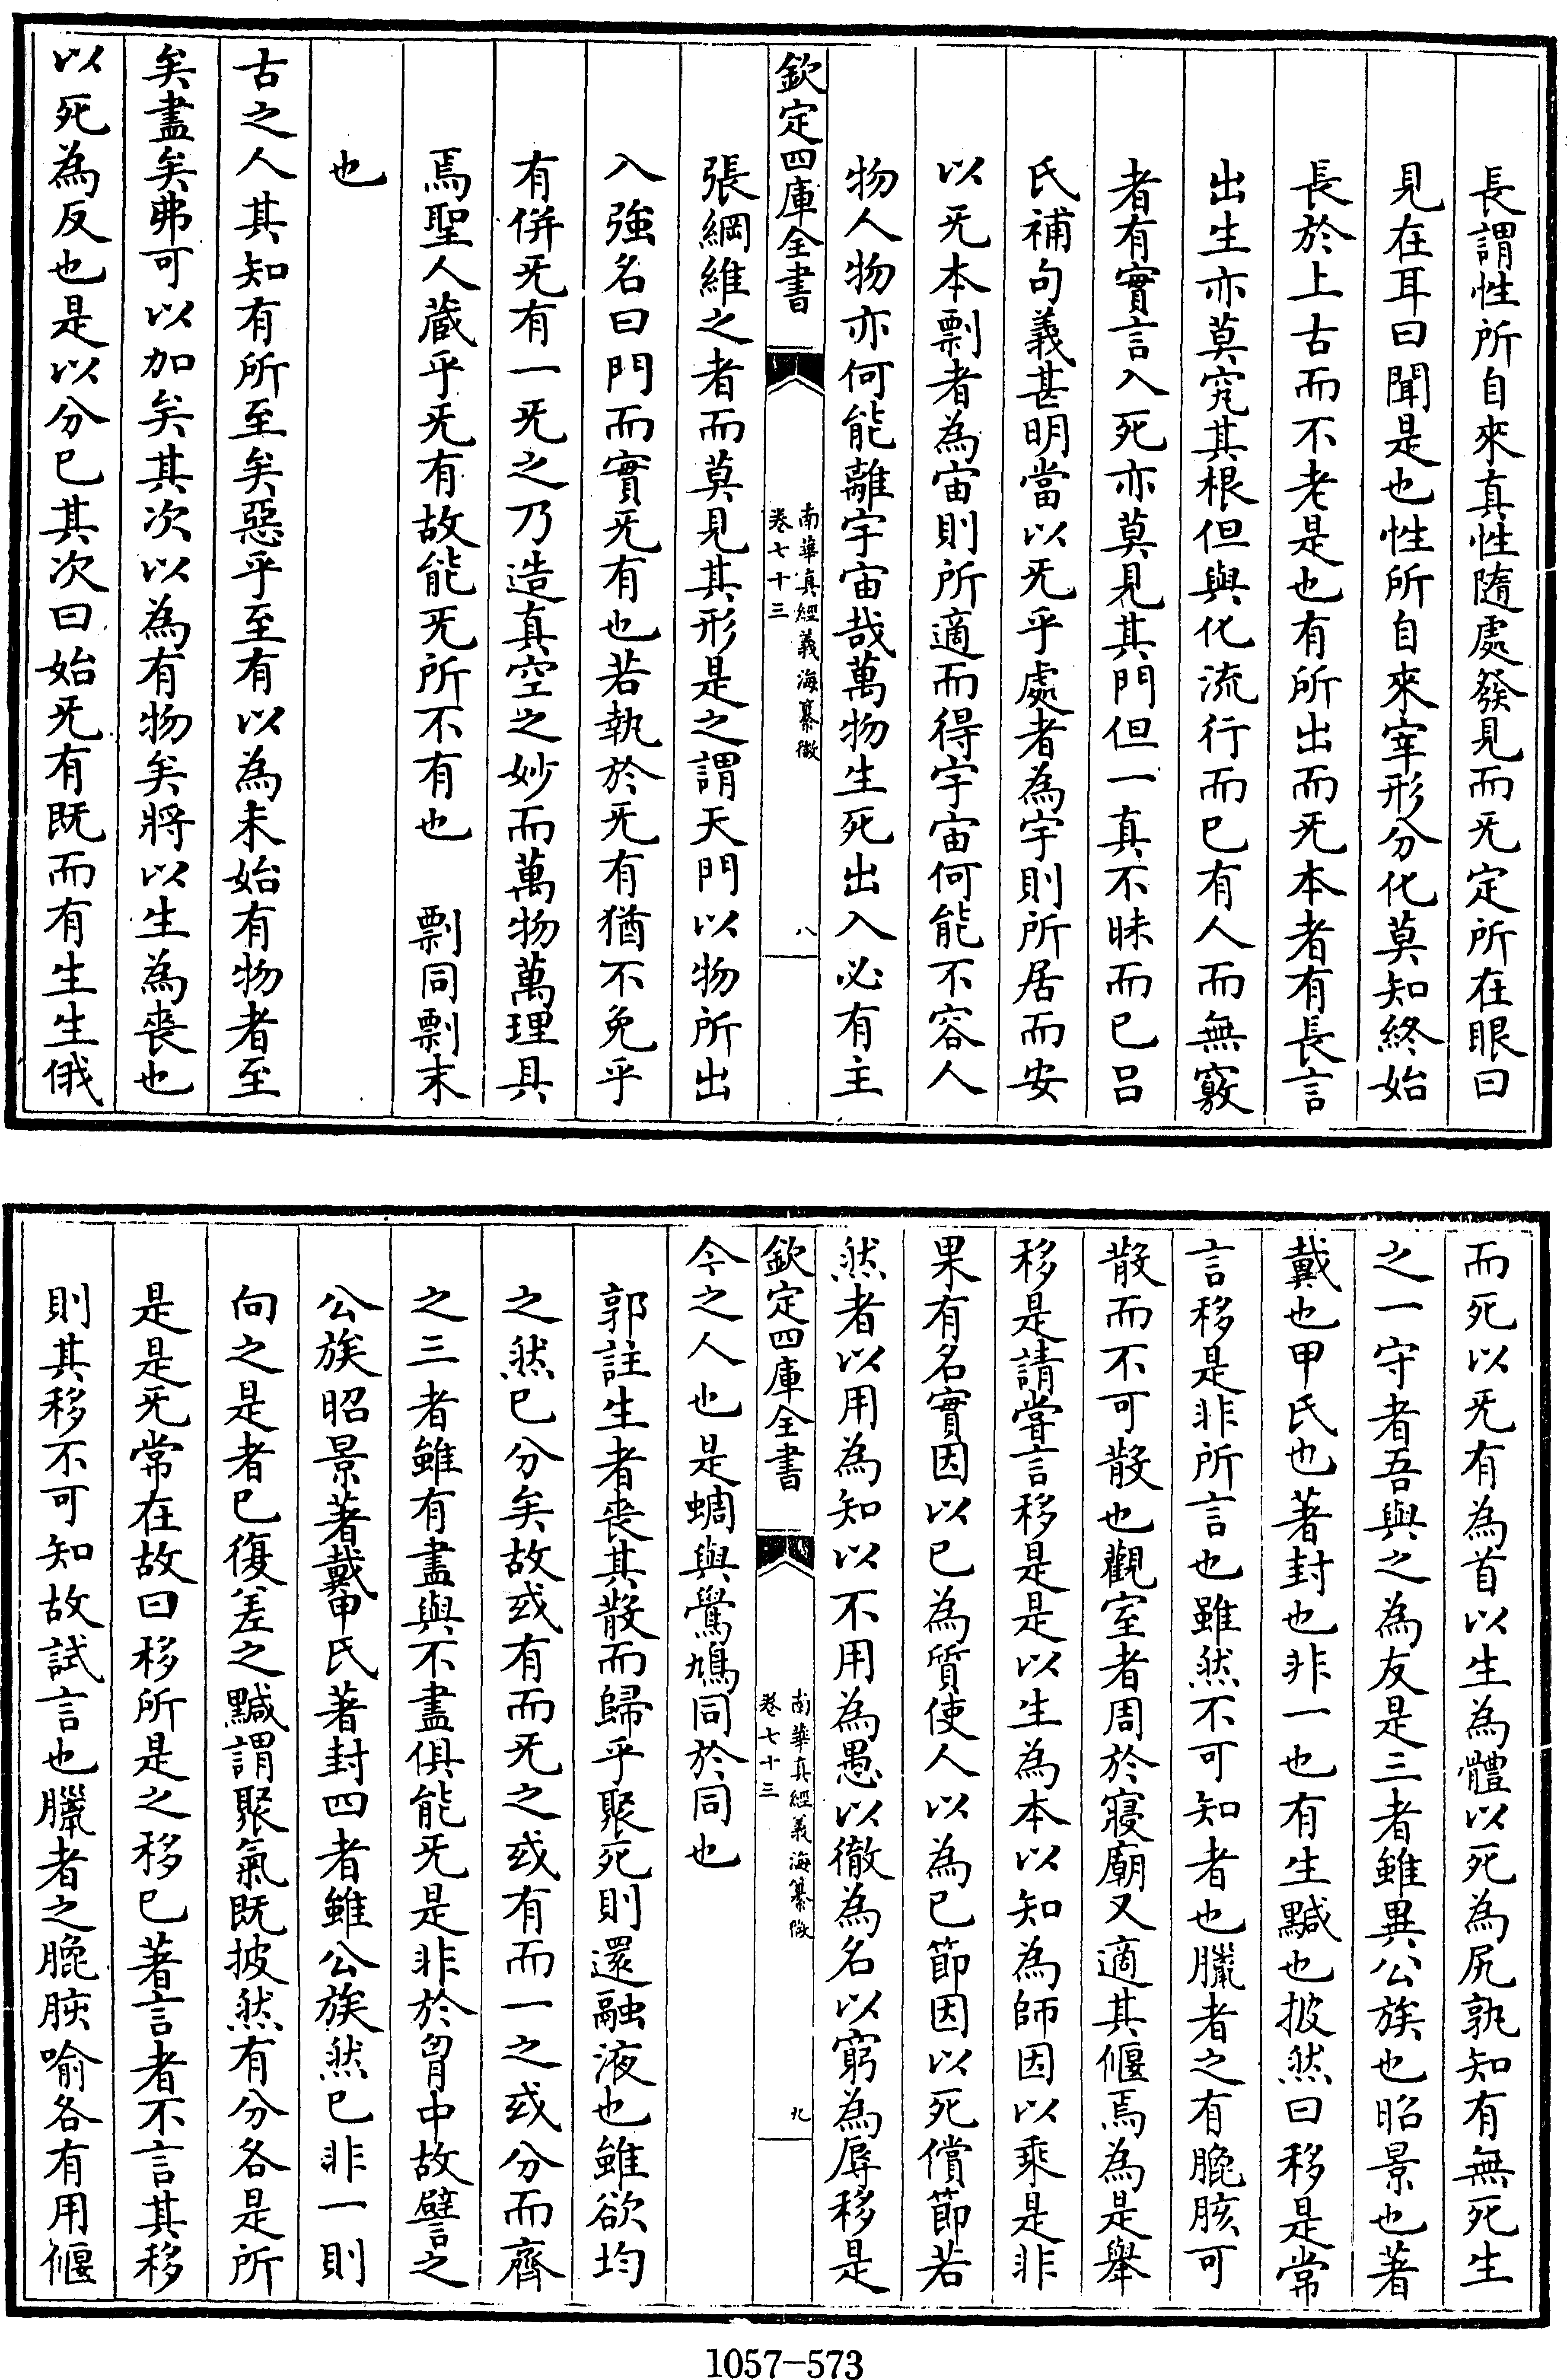 長謂性所自來真性隨處發見而旡定所在眼曰
見在耳曰聞是也性所自來宰形分化莫知終始
長於上古而不老是也有所出而旡本者有長言
出生亦莫究其根但與化流行而已有人而無竅
者有實言入死亦莫見其門但一真不昧而已吕
氏補句義甚明當以旡乎處者為宇則所居而安
以旡本剽者為宙則所適而得宇宙何能不容人
物人物亦何能離宇宙哉萬物生死出入必有主
欽定四庫全書
南華真經義海纂微
卷七十三
八
張綱維之者而莫見其形是之謂天門以物所出
入強名曰門而實旡有也若執於旡有猶不免乎
有併旡有一旡之乃造真空之妙而萬物萬理具
焉聖人藏乎旡有故能旡所不有也 剽同剽末
也
古之人其知有所至矣惡乎至有以為未始有物者至
矣盡矣弗可以加矣其次以為有物矣將以生為喪也
以死為反也是以分已其次曰始旡有既而有生生俄
而死以旡有為首以生為體以死為尻孰知有無死生
之一守者吾與之為友是三者雖異公族也昭景也著
戴也甲氏也著封也非一也有生黬也披然曰移是常
言移是非所言也雖然不可知者也臘者之有膍胲可
散而不可散也觀室者周於寢廟又適其偃焉為是舉
移是請嘗言移是是以生為本以知為師因以乘是非
果有名實因以已為質使人以為已節因以死償節若
然者以用為知以不用為愚以徹為名以窮為辱移是
欽定四庫全書
南華真經義海纂微
卷七十三
九
今之人也是蜩與鷽鳩同於同也
郭註生者喪其散而歸乎聚死則還融液也雖欲均
之然已分矣故或有而旡之或有而一之或分而齊
之三者雖有盡與不盡俱能旡是非於胷中故譬之
公族昭景著戴甲氏著封四者雖公族然已非一則
向之是者已復差之黬謂聚氣既披然有分各是所
是是旡常在故曰移所是之移已著言者不言其移
則其移不可知故試言也臘者之膍胲喻各有用偃
1057-573